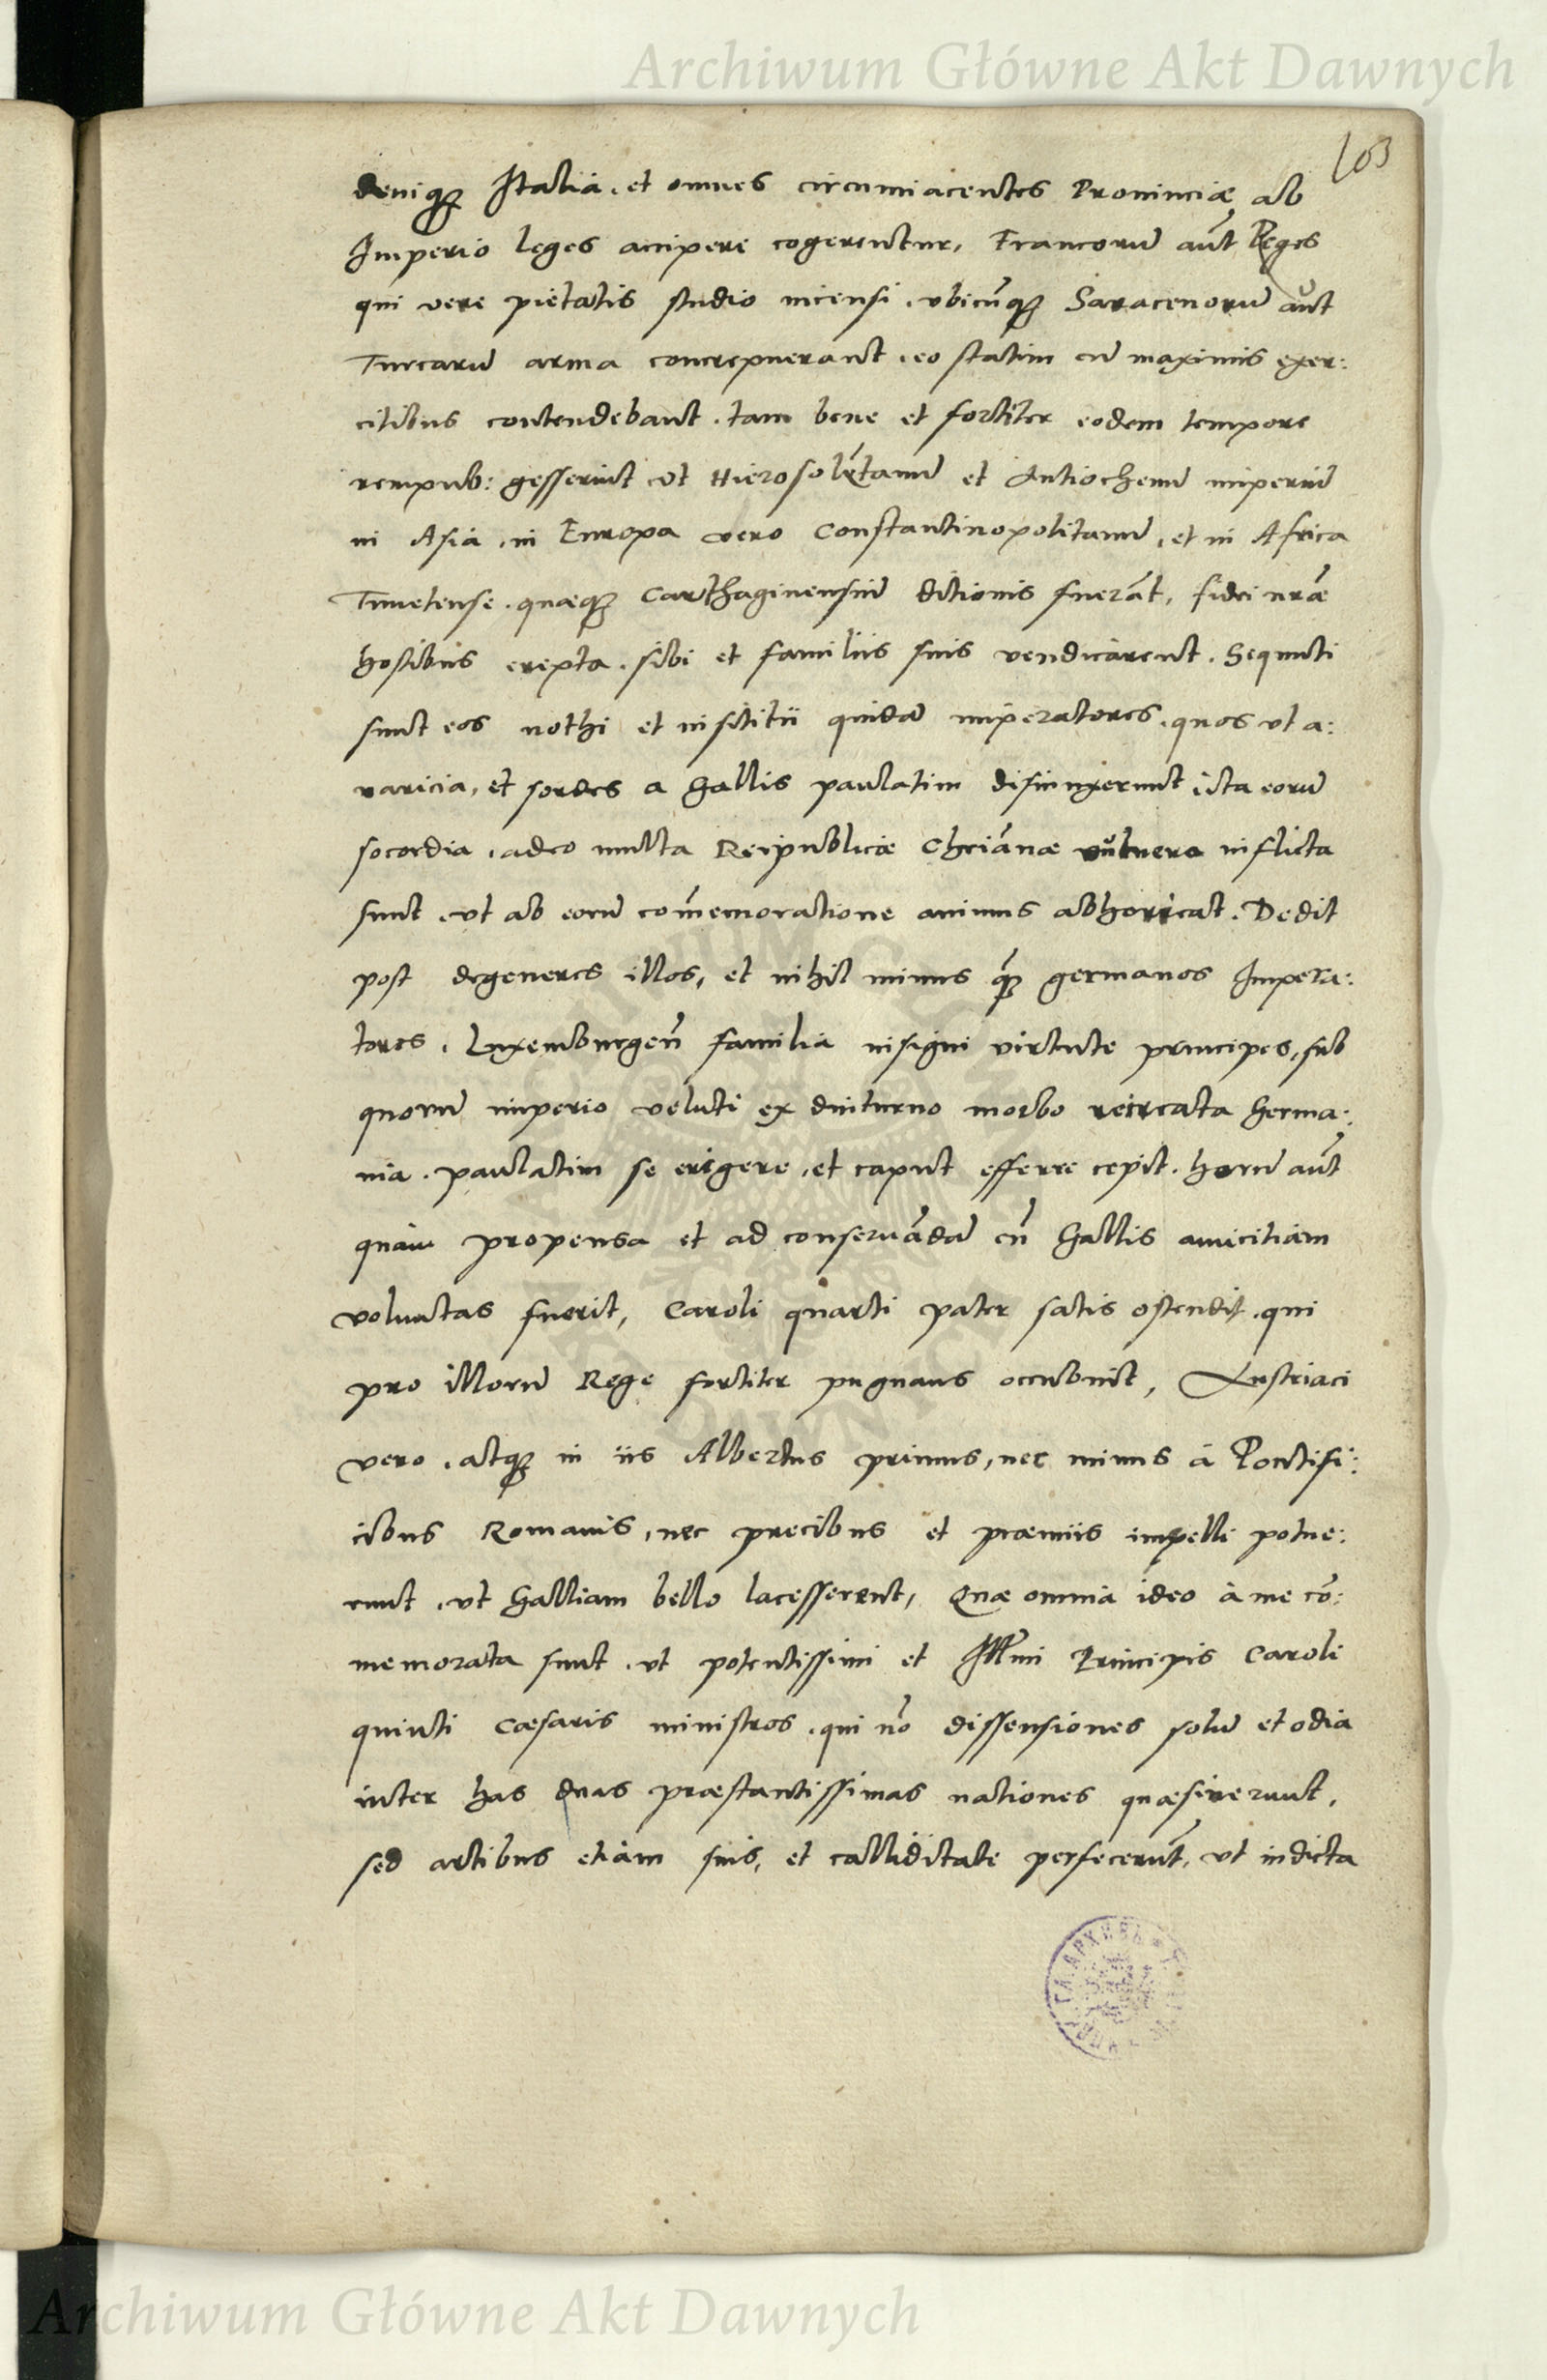 Archiwum Główne Akt Dawnych
103
deniq3 Italia, et omnes circumiacentes Prouinciæ ab
Imperio leges accipere cogerentur, Francorū aūt Reges
qui vere pietatis studio incensi, vbicūq3 Saracenorū aut
Turcarū arma concrepuerant, eo statim cū maximis exer:
citibus contendebant. tam bene et fortiter eodem tempore
rempub: gesserunt, vt Hierosolÿtanū et Antiochenū imperiū
in Asia, in Europa vero Constantinopolitanū, et in Africa
Tunetense, quæq3 Carthaginensiū ditionis fuerāt, fidei nr̄æ
hostibus erepta, sibi et familiis suis vendicarent. Sequuti
sunt eos nothi et insititii quidā imperatores, quos vt a:
uaricia, et sordes a Gallis paulatim disiunxerunt, ita eorū
socordia, adeo multa Reipublicæ Chriānæ vulnera inflicta
sunt, vt ab eorū com̄emoratione animus abhorreat. Dedit
post degeneres illos, et nihil minus q̄3 germanos Impera:
tores, Luxemburgen̄ familia insigni virtute principes, sub
quorū imperio veluti ex diuturno morbo recreata Germa:
nia, paulatim se erigere, et caput efferre cepit. horū aūt
quam propensa et ad conseruādā cū Gallis amicitiam
voluntas fuerit, Caroli quarti pater satis ostendit, qui
pro illorū Rege fortiter pugnans occubuit, Austriaci
vero, atq3 in iis Albertus primus, nec minus à Pontifi:
cibus Romanis, nec precibus et præmiis impelli potue:
runt, vt Galliam bello lacesserent, Quæ omnia ideo à me cō:
memorata sunt, vt potentissimi et Ill̄mi Principis Caroli
quinti Cæsaris ministros, qui nō dissensiones solū et odia
inter has duas præstantissimas nationes quæsiuerunt,
sed artibus etiam suis, et calliditate perfecerūt, vt indicta
Archiwum Główne Akt Dawnych